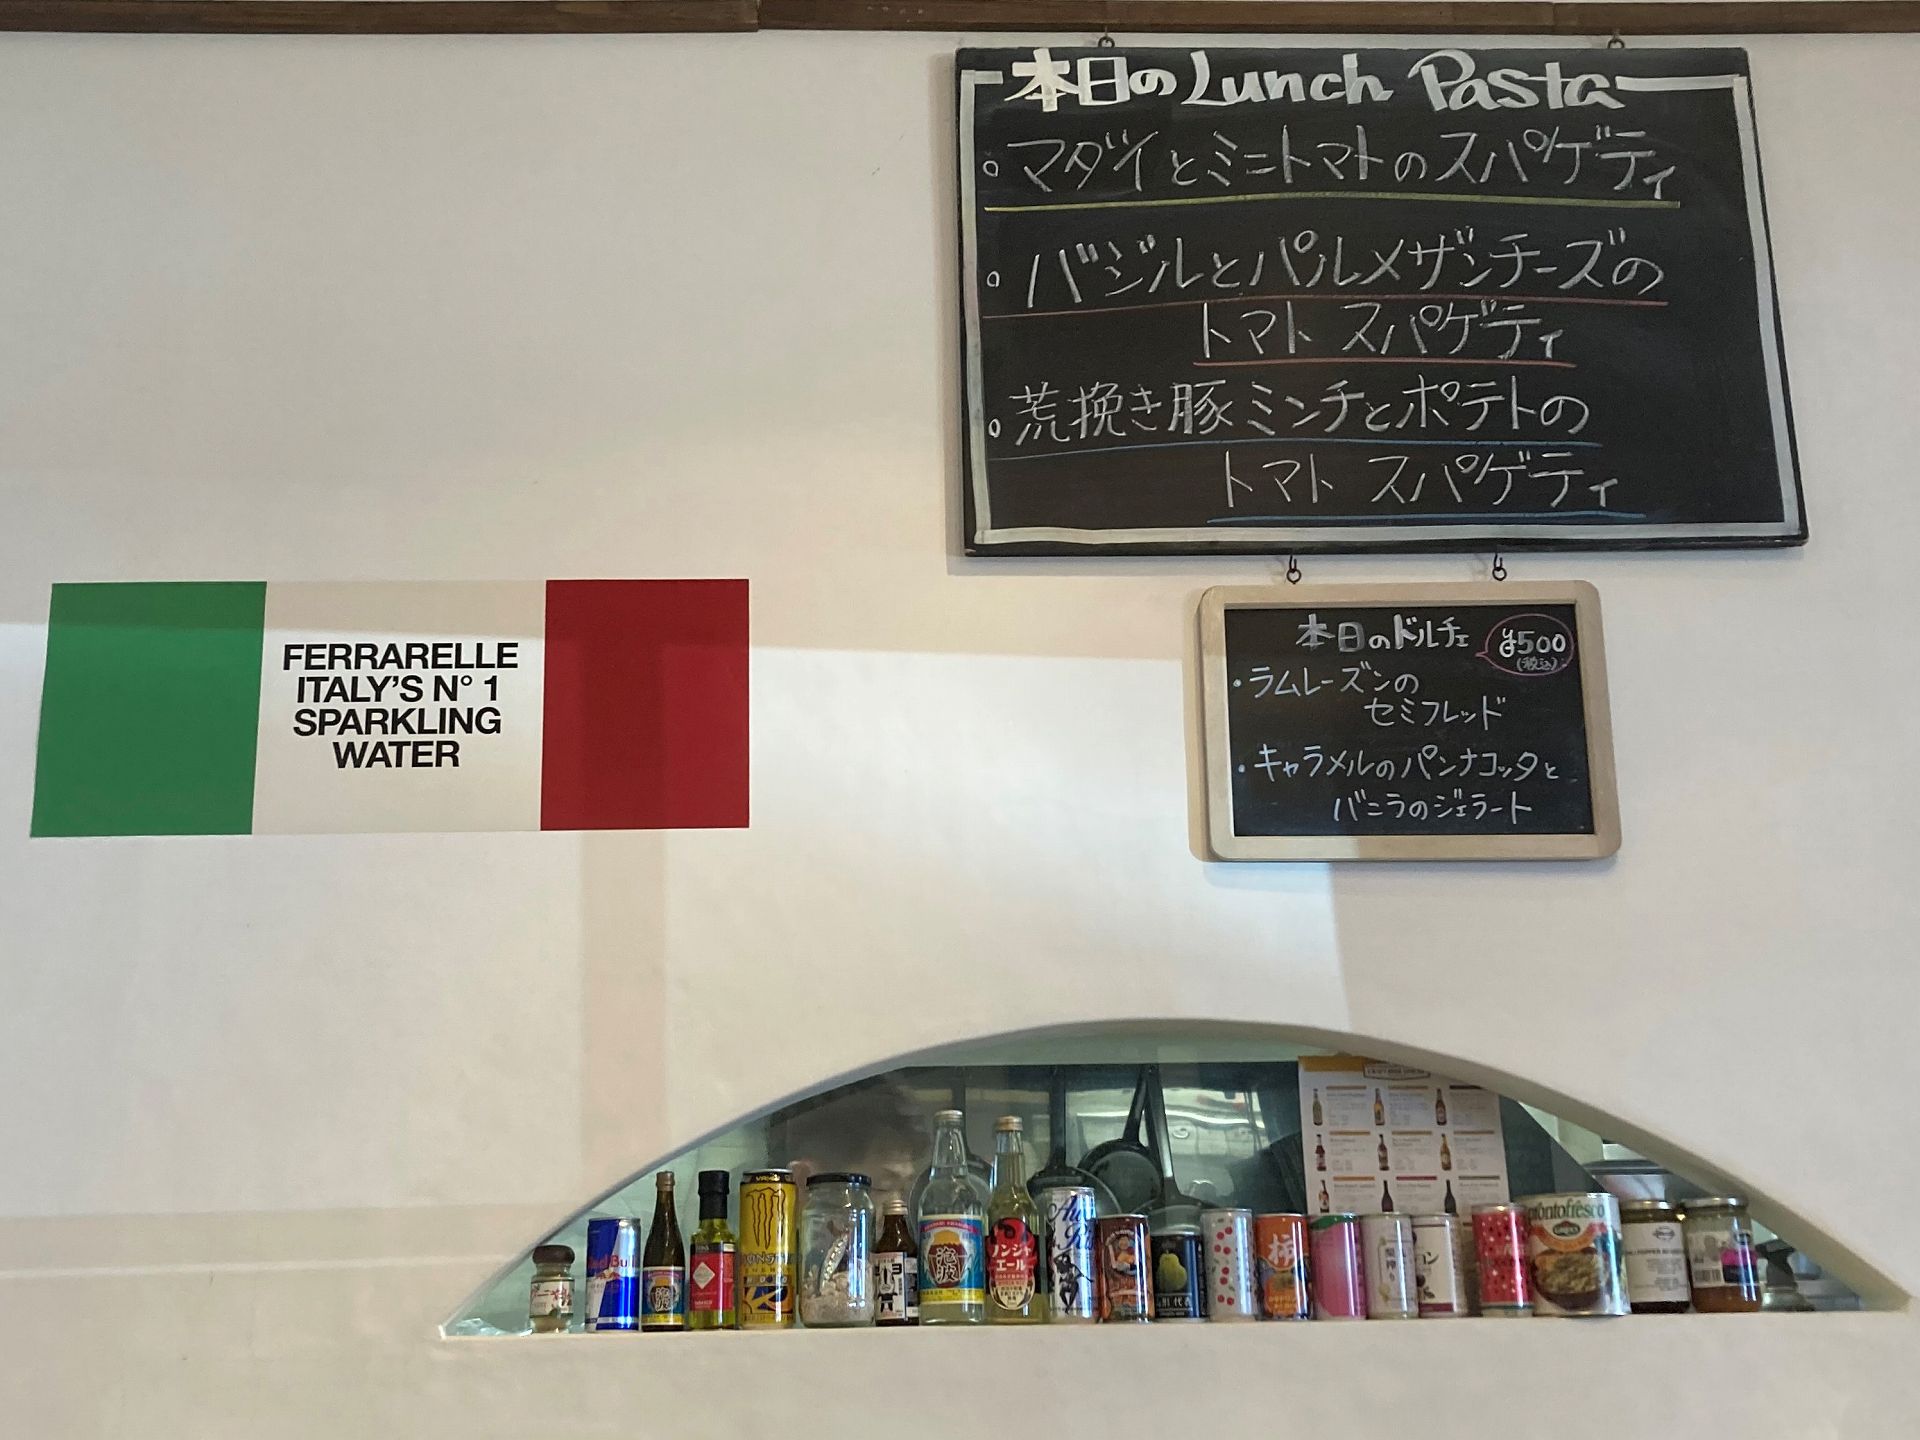 本日のLunch Pasta
。マダイとミニトマトのスパゲティ
。バジルとパルメザンチーズの
トマト スパゲティ
。荒挽き豚ミンチとポテトの
トマト スパゲティ
本日のドルチェ ¥500
(税込)
・ラムレーズンの
セミフレッド
・キャラメルのパンナコッタと
バニラのジェラート
FERRARELLE
ITALY'S N° 1
SPARKLING
WATER
Red Bull
ノンジャ
エール
柿
prontofresco